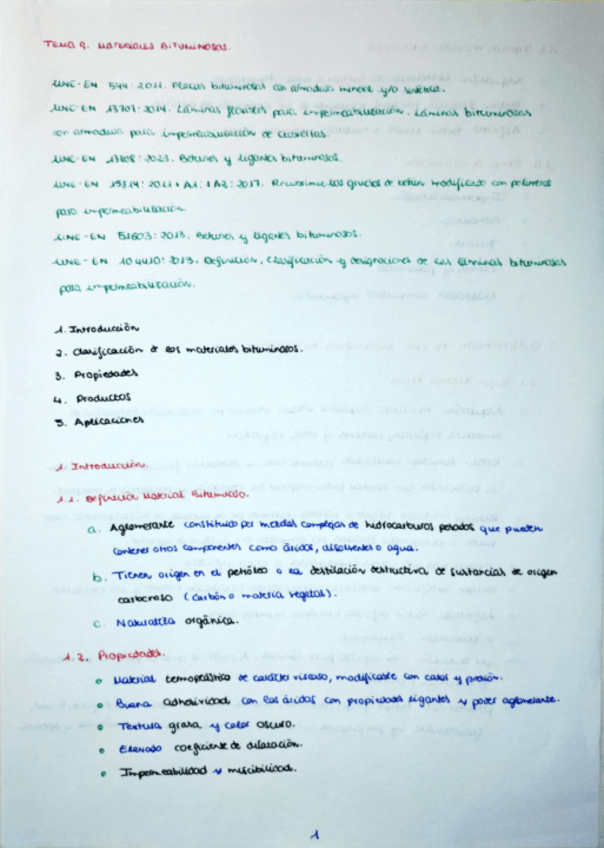 TEMA 9. MATERIALES BITUMINOSOS.
UNE-EN 544:2011. Placas bituminosas con armadura mineral y/o sintética.
UNE-EN 13707:2014. Láminas flexibles para impermeabilización. Láminas bituminosas
con armadura para impermeabilización de cubiertas.
UNE-EN 13808:2013. Betunes y ligantes bituminosos.
UNE-EN 15814:2011+A1:+A2:2017. Recubrimientos gruesos de betún modificado con polímeros
para impermeabilización.
UNE-EN 51603:2013. Betunes y ligantes bituminosos.
UNE-EN 104410:2013. Definición, clasificación y designaciones de las láminas bituminosas
para impermeabilización.
1. Introducción
2. Clasificación de los materiales bituminosos.
3. Propiedades
4. Productos
5. Aplicaciones
1. Introducción.
1.1. Definición Material Bituminoso.
a. Aglomerante constituido por mezclas complejas de hidrocarburos pesados que pueden
contener otros componentes como áridos, disolventes o agua.
b. Tienen origen en el petróleo o la destilación destructiva de sustancias de origen
carbonoso (carbón o materia vegetal).
c. Naturaleza orgánica.
1.2. Propiedades.
• Material termoplástico de carácter viscoso, modificable con calor y presión.
• Buena adhesividad con los áridos con propiedades ligantes y poder aglomerante.
• Textura grasa y color oscuro.
• Elevado coeficiente de dilatación.
• Impermeabilidad y miscibilidad.
1